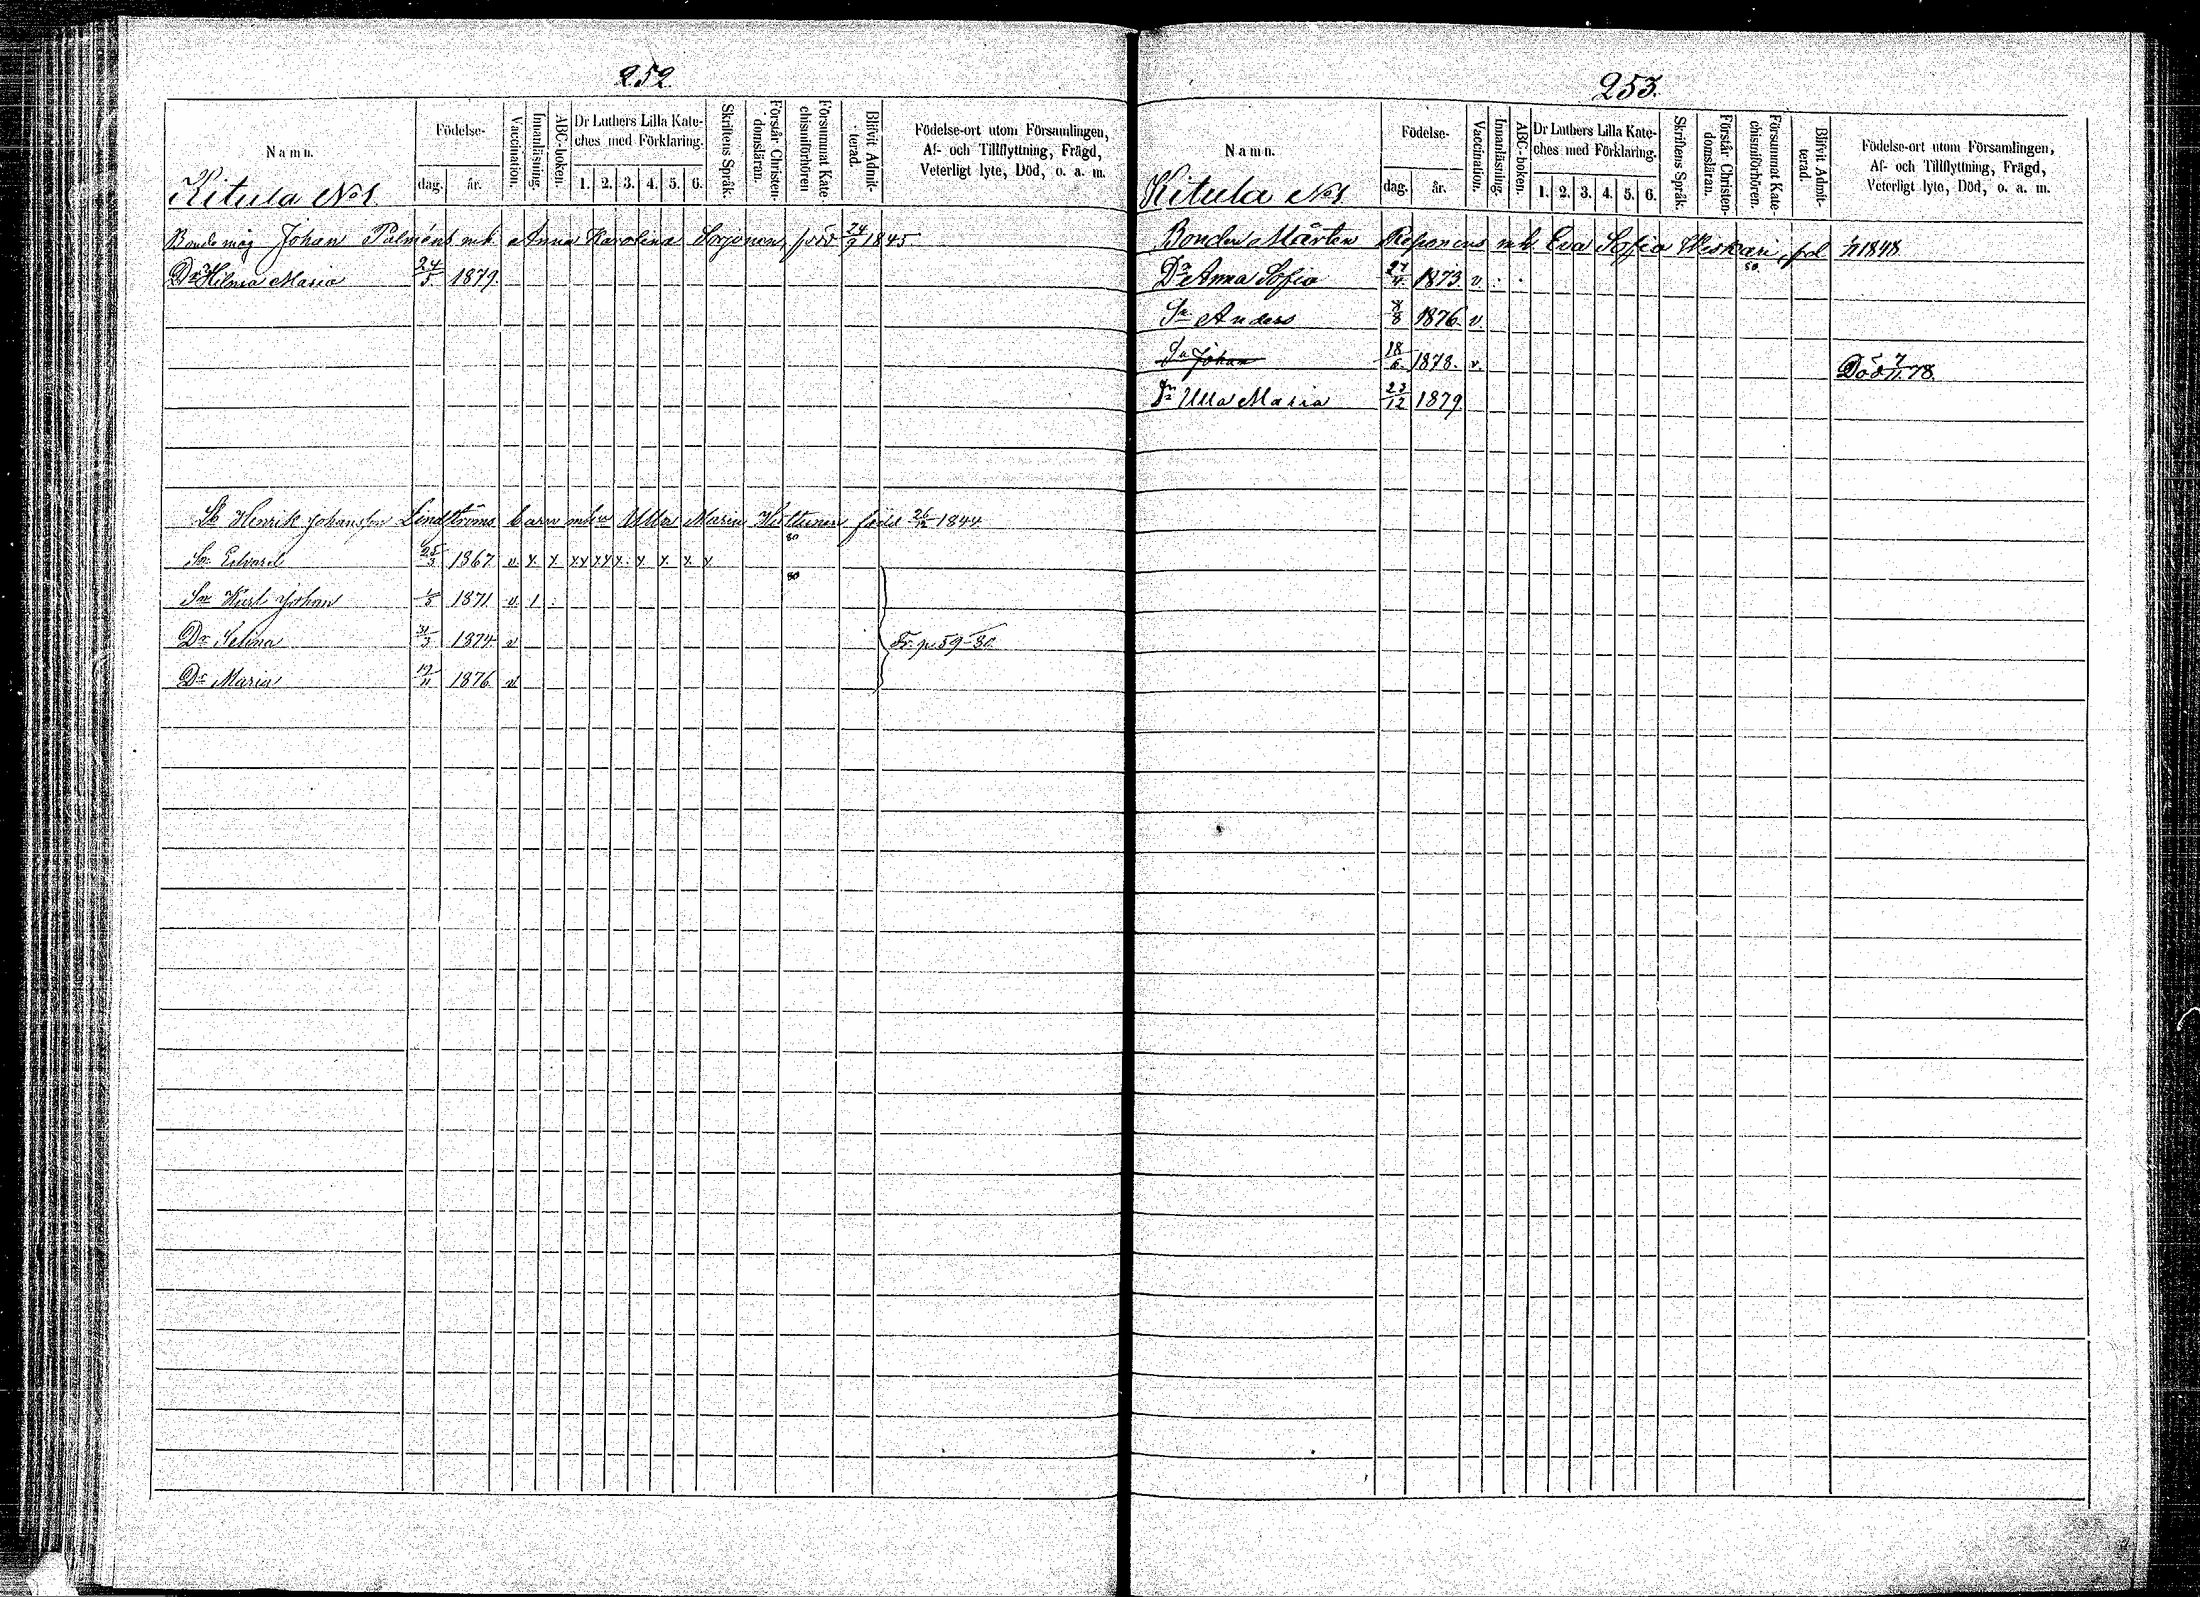 252.
Namn. Födelse- dag. år. Vaccination. Innanläsning. ABC-boken. Dr Luthers Lilla Kateches med Förklaring. 1. 2. 3. 4. 5. 6. Skriftens Språk. Förstår Christendomsläran. Försummat Katechismiförhören Blifvit Admitterad. Födelse-ort utom Församlingen, Af- och Tillflyttning, Frägd, Veterligt lyte, Död, o. a. m.
Kitula No 1.
Bondemåg Johan Palméns mh Anna Karolina Sorjonen, född 24/9 1845
Dr Hilma Maria 24/5 1879.
Henrik Johansson Lindströms barn mh Ulla Maria Huttunen född 26/12 1844
80
Sn Edvard 25/3 1867 v
80
Sn Karl Johan 1871 v 1 :
Dr Selina 31/3 1874 v Fr. p. 59-80.
Dr Maria 1876 v
253.
Namn. Födelse- dag. år. Vaccination. Innanläsning. ABC-boken. Dr Luthers Lilla Kateches med Förklaring. 1. 2. 3. 4. 5. 6. Skriftens Språk. Förstår Christendomsläran. Försummat Katechismiförhören. Blifvit Admitterad. Födelse-ort utom Församlingen, Af- och Tillflyttning, Frägd, Veterligt lyte, Död, o. a. m.
Kitula No 1.
Bonden Mårten Reponens mh Eva Sofia Weskari, föd 1848
80.
Dr Anna Sofia 27/4 1873. v : .
Sn Anders 1876. v
Sn Johan 18/6 1878. v. Död 7/11 78.
Dr Ulla Maria 23/12 1879